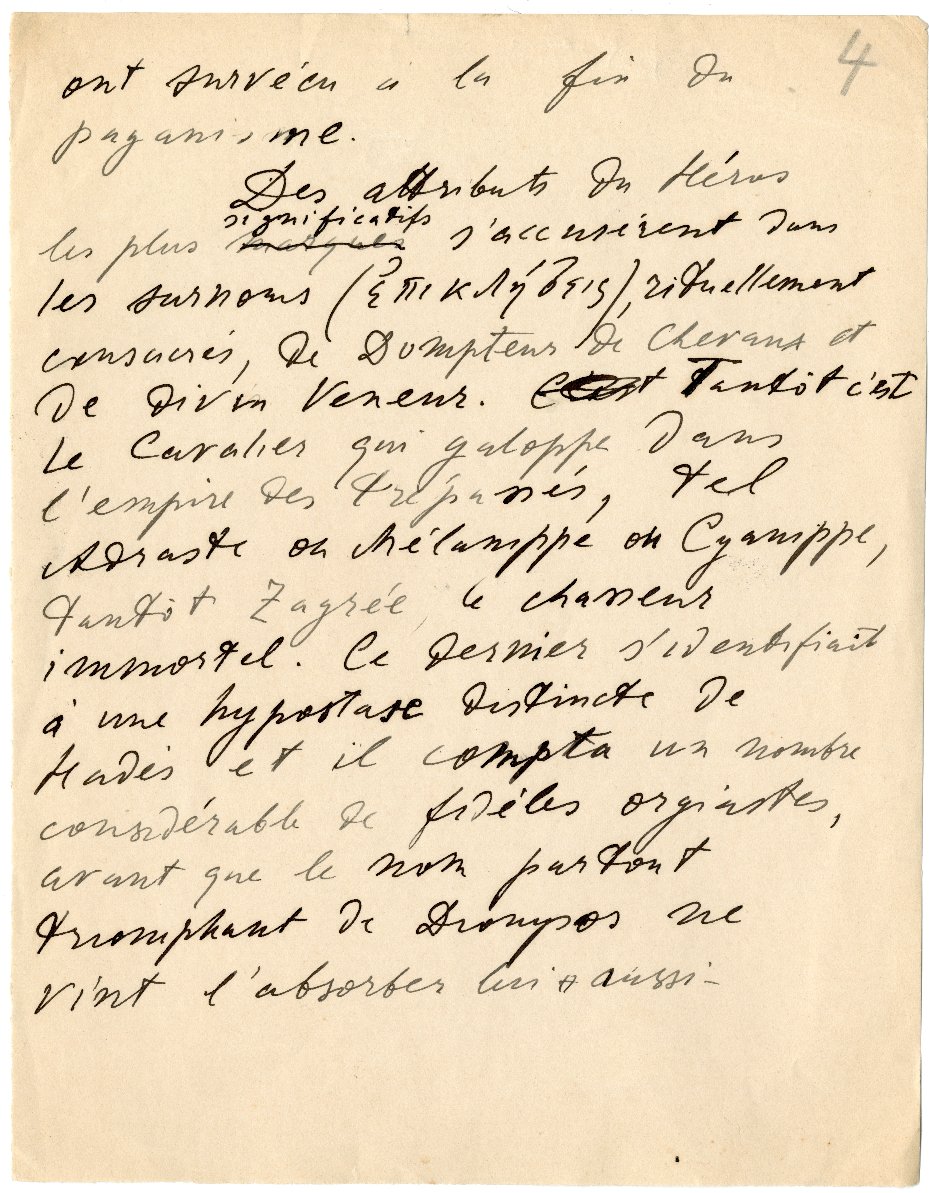 4
ont survécu à la fin du
paganisme.
Des attributs du Héros
significatifs
les plus marqués s'accusèrent dans
les surnoms (ἐπικλήσεις), rituellement
consacrés, de Dompteur de Chevaux et
de divin Veneur. C'est Tantôt c'est
le Cavalier qui galoppe dans
l'empire des trépassés, tel
Adraste ou Mélamppe ou Cyamippe,
tantôt Zagrée, le chasseur
immortel. Ce dernier s'identifiait
à une hypostase distincte de
Hadès et il compta un nombre
considérable de fidèles orgiastes,
avant que le nom partout
triomphant de Dionysos ne
vînt l'absorber lui aussi-